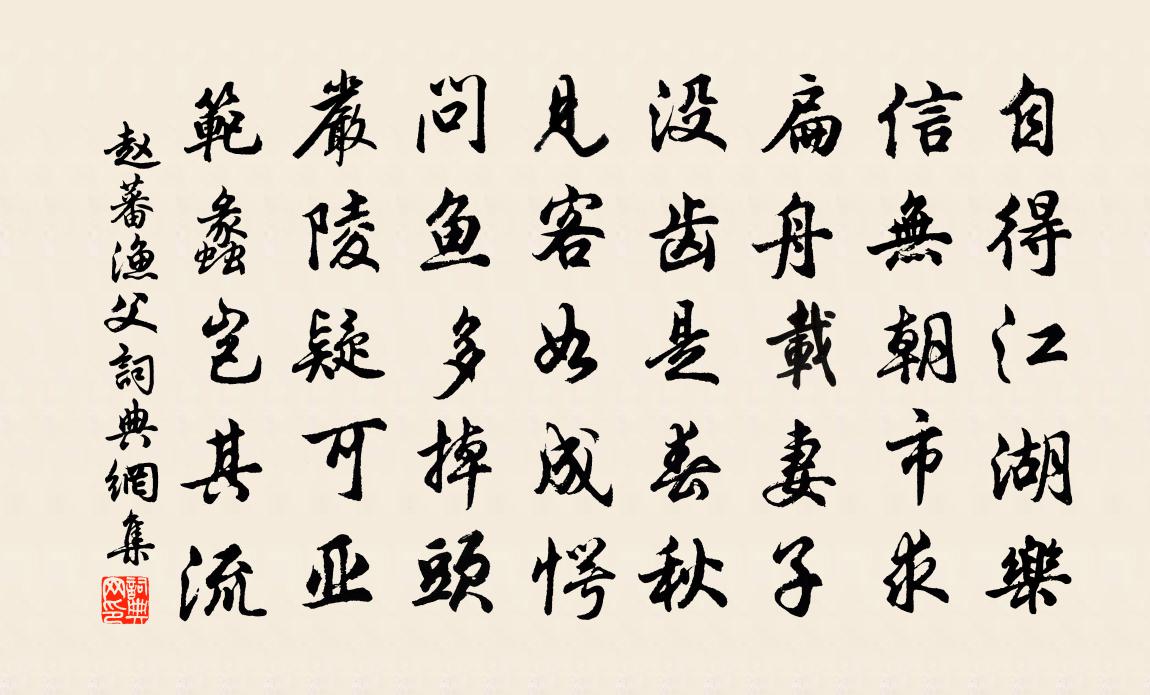 自得江湖樂
信無朝市求
扁舟載妻子
没齿是春秋
見客如成愕
問鱼多掉頭
嚴陵疑可亚
範蠡岂其流
赵蕃漁父詞典網集
詞典網印